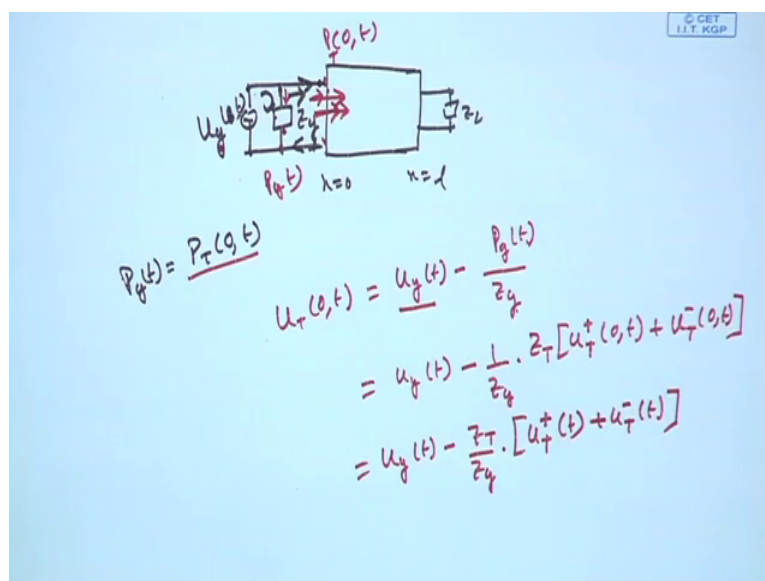 © CET
I.I.T. KGP
P(0,t)
T
Ug(t) Zg ZL
Pg(t) x=0 x=l
Pg(t) = PT(0,t)
UT(0,t) = Ug(t) - Pg(t)/Zg
= Ug(t) - 1/Zg · ZT[UT⁺(0,t) + UT⁻(0,t)]
= Ug(t) - ZT/Zg · [UT⁺(t) + UT⁻(t)]